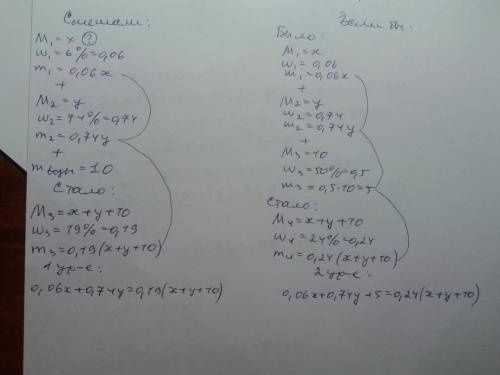 Смешали:
M₁ = x ?
w₁ = 6% = 0,06
m₁ = 0,06x
+
M₂ = y
w₂ = 74% = 0,74
m₂ = 0,74y
+
m воды = 10
Стало:
M₃ = x+y+10
w₃ = 19% = 0,19
m₃ = 0,19(x+y+10)
1 ур-е:
0,06x+0,74y=0,19(x+y+10)
Если бы:
Было:
M₁ = x
w₁ = 0,06
m₁ = 0,06x
+
M₂ = y
w₂ = 0,74
m₂ = 0,74y
+
M₃ = 10
w₃ = 50% = 0,5
m₃ = 0,5·10=5
Стало:
M₄ = x+y+10
w₄ = 24% = 0,24
m₄ = 0,24(x+y+10)
2 ур-е:
0,06x+0,74y+5=0,24(x+y+10)